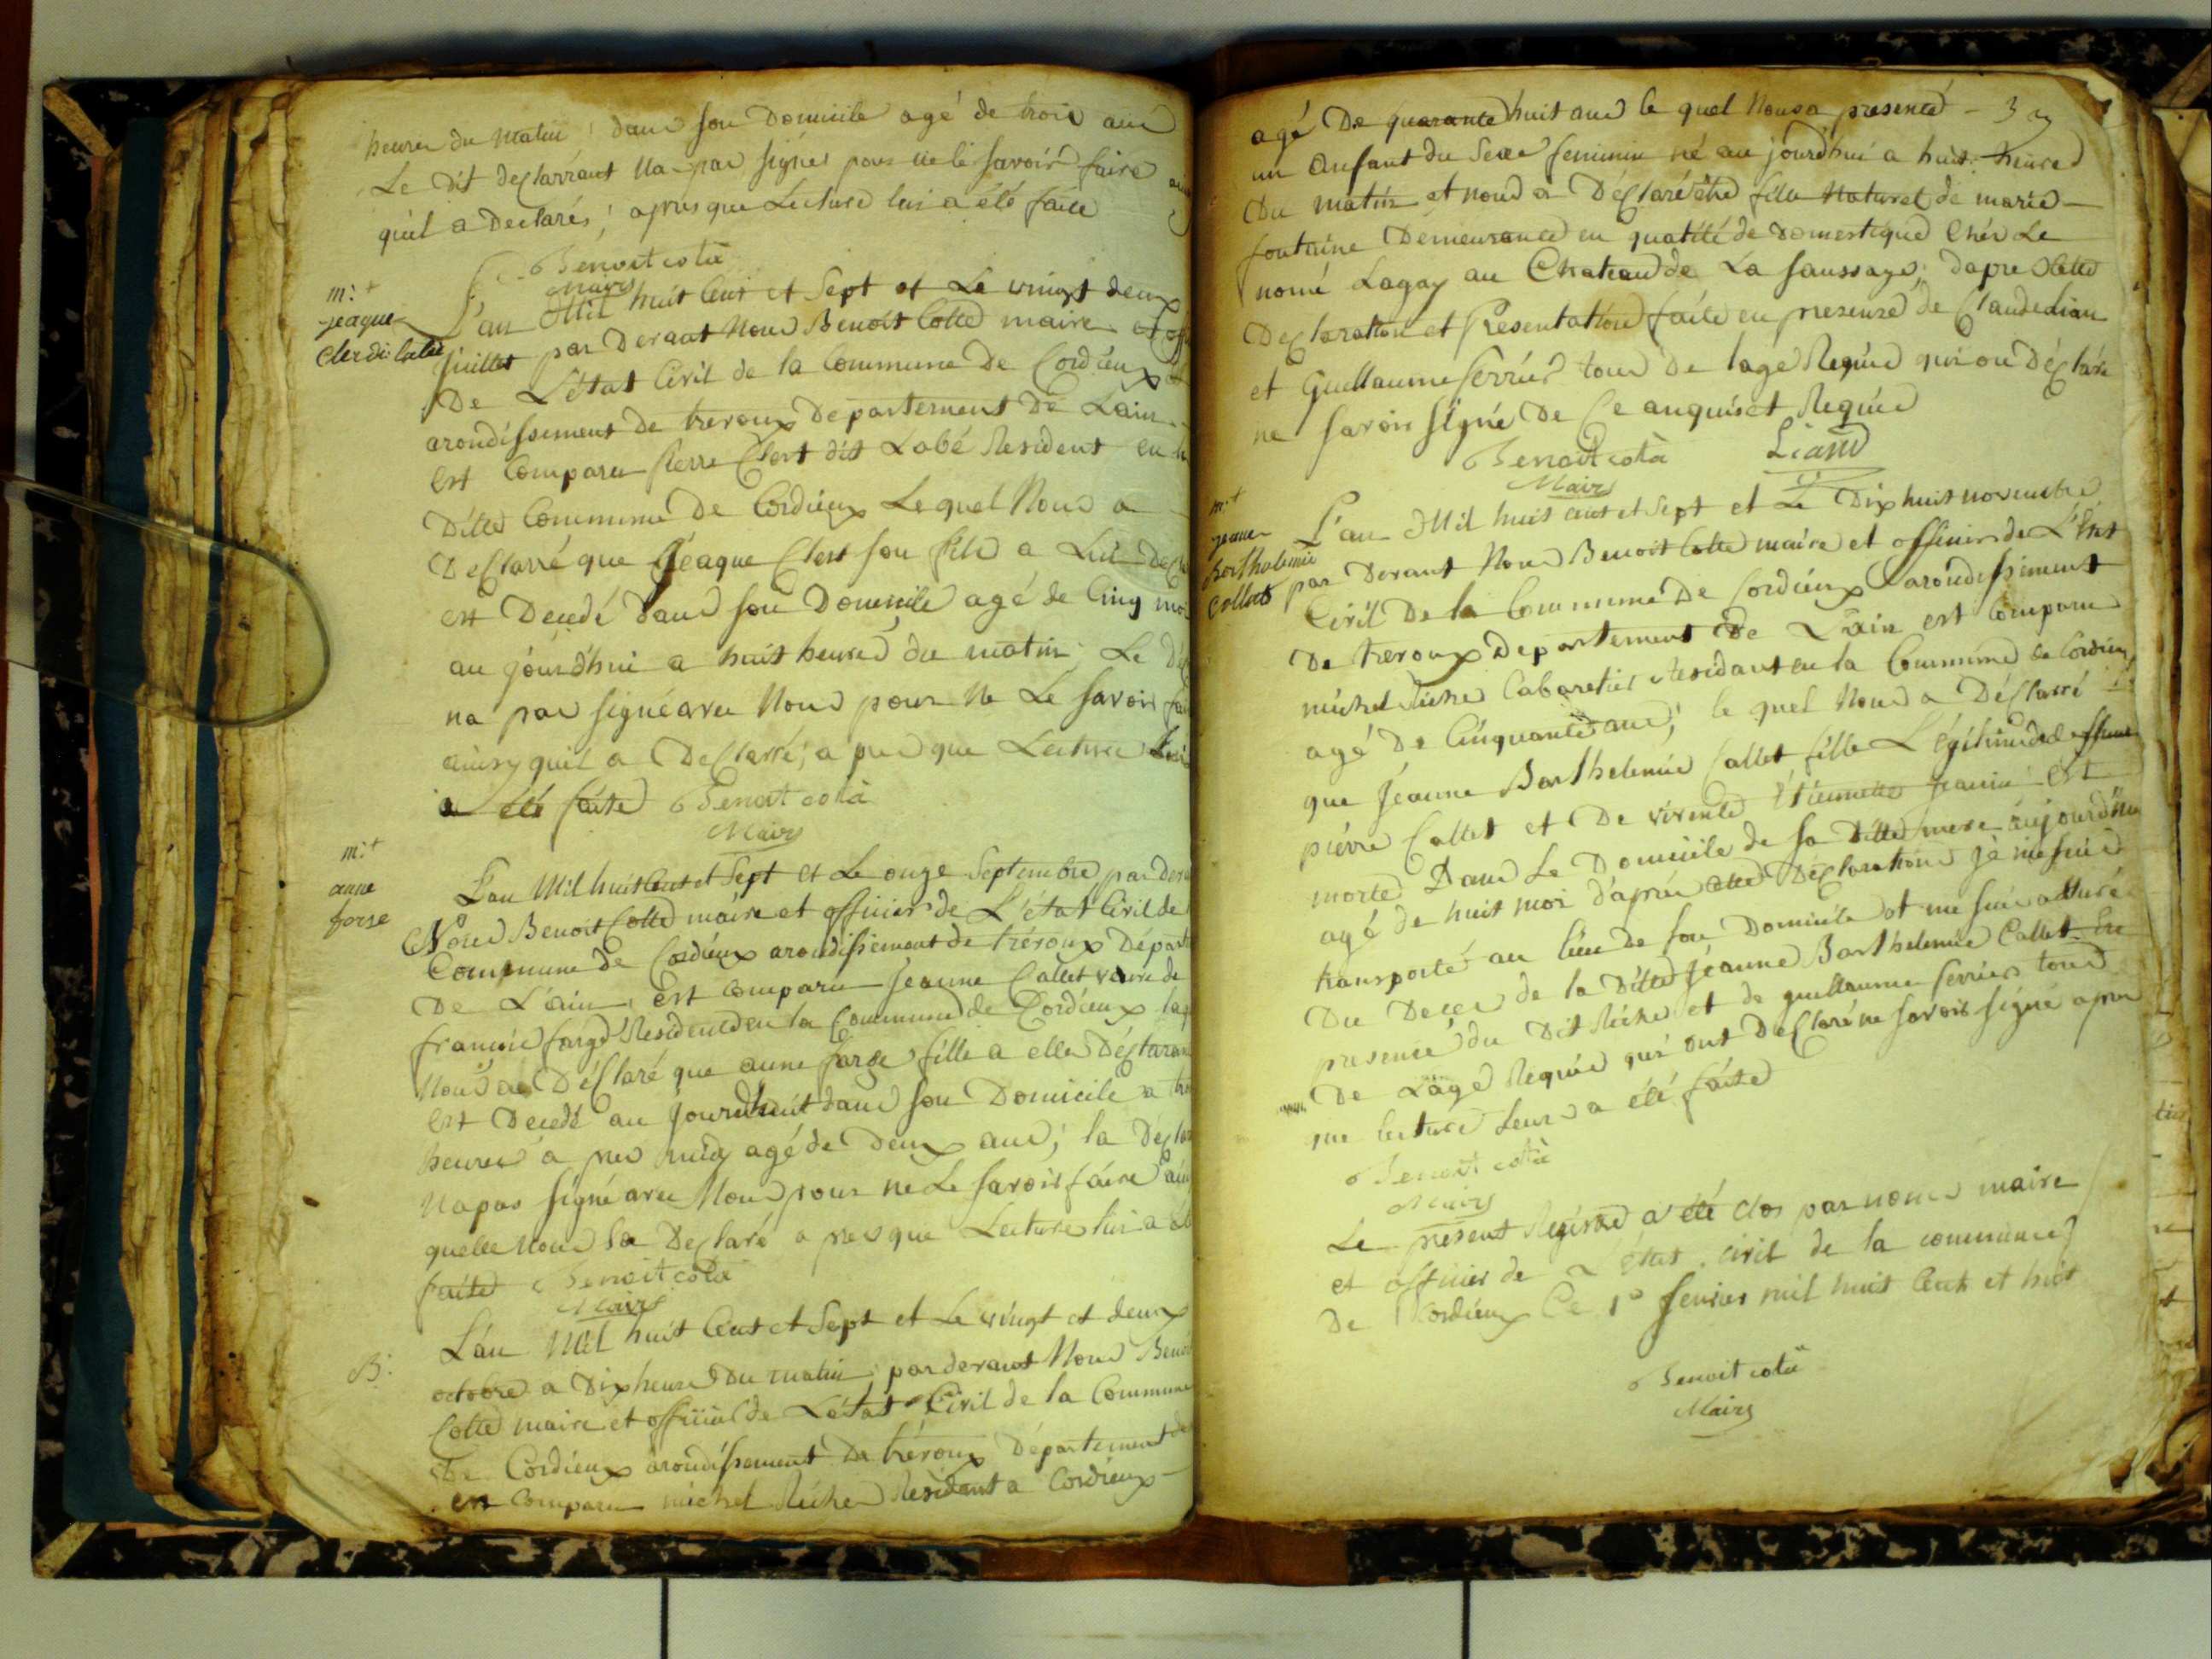 heures du matin ; dans son Domicile agé de trois ans
Le Dit desclarrant Na pas signés pour ne le savoir faire
quil a Declarés ; apres que Lecture lui a été faite
Benoit cotte
Maire
m:t
jeaque
Clerdi labé
L'an Mil huit Cent et Sept et Le vingt deux
juillet par Devant Nous Benoit Cotte maire et off
De L'état Civil de la Commune De Cordieux
arondissement de trevoux Departement De Lain
est Comparu Pierre Clert dit Labé Resident en
Ditte Commune De Cordieux Le quel Nous a
Desclarré que Jeaque Clert son fils a Lui Desc
est Decedé Dans son Domicile agé de Cinq mo
au jourd'hui a huit heures du matin ; Le Dés
na pas signé avec Nous pour Ne Le savoir fai
ainsy quil a Desclarré ; a pres que Lecture Lui
a été faite Benoit cotte
Maire
m:t
anne
forge
L'an Mil huit Cent et Sept et Le onze Septembre par Deva
Nous Benoit Cotte maire et officier de L'état Civil de
Commune de Cordieux arondissement de tréroux Départ
De L'ain est Comparu Jeanne Callet veuve de
francois farge Residente en la Commune de Cordieux laq
Nous a Désclaré que anne farge fille a elle Désclaran
est Decedé au jourdhuit dans son Domicile a tro
heures a pres midy agé de Deux ans ; la Desclar
Napas signé avec Nous pour ne Le savoir faire ain
quelle Nous la Desclaré a pres que Lecture lui a été
faite Benoit cotte
Maire
B:
L'an Mil huit Cent et Sept et Le vingt et deux
octobre a Dix heures Du matin par devant Nous Benoi
Cotte maire et officier de L'état Civil de la Commune
De Cordieux arondissement De tréroux Département de
est comparu michel Riche Résidant a Cordieux
agé De quarante huit ans le quel Nous a presenté
un Enfant du Sexe feminin né au jourdhui a huit heures
Du matin et nous a Désclaré etre fille Naturel de marie
fontaine Demeurante en qualité de Domestique Chés Le
nomé Lagay au Chateau de La saussaye ; dapres cette
Desclaration et Presentation faite en presense de Claude Liau
et Guillaume ferriér tous De lage Requie qui on Désclaré
ne savoir signé De Ce anquis et Requie
Benoit cotte Liaud
Maire
m:t
jeanne
Berthelemie
Collets
L'an Mil huit cent et Sept et Le Dix huit novembre
par Devant Nous Benoit Cotte maire et officier de L'état
Civil De la Commune De Cordieux arondissiment
De treroux Departement De L'ain est comparu
michel Riche Cabaretier Residant en la Commune de Cordieux
agé De Cinquante ans ; le quel Nous a Désclarré
que Jeanne Barthelemie Callet fille Légitime de deffunt
piérre Callet et De vivente Etiennette Jeanin est
morte Dans Le Domicile de sa Ditte mere aujourdhui
agé de huit moi d'aprés cette Désclaration jé me suis
transporté au lieu De son Domicile et me suis assuré
Du Deces de la Ditte Jéanne Barthelemie Callet En
presence du Dit Riche et de guillaume ferrier tous
De L'age Requie qui ont Desclaré ne savoir signé apres
que lecture Leur a été faite
Benoit cotte
Maire
Le present Registre a été clos par nous maire
et officier de L'état civil de la commune
De Cordieux Ce 1e fevrier mil huit Cent et huit
Benoit cotte
Maire